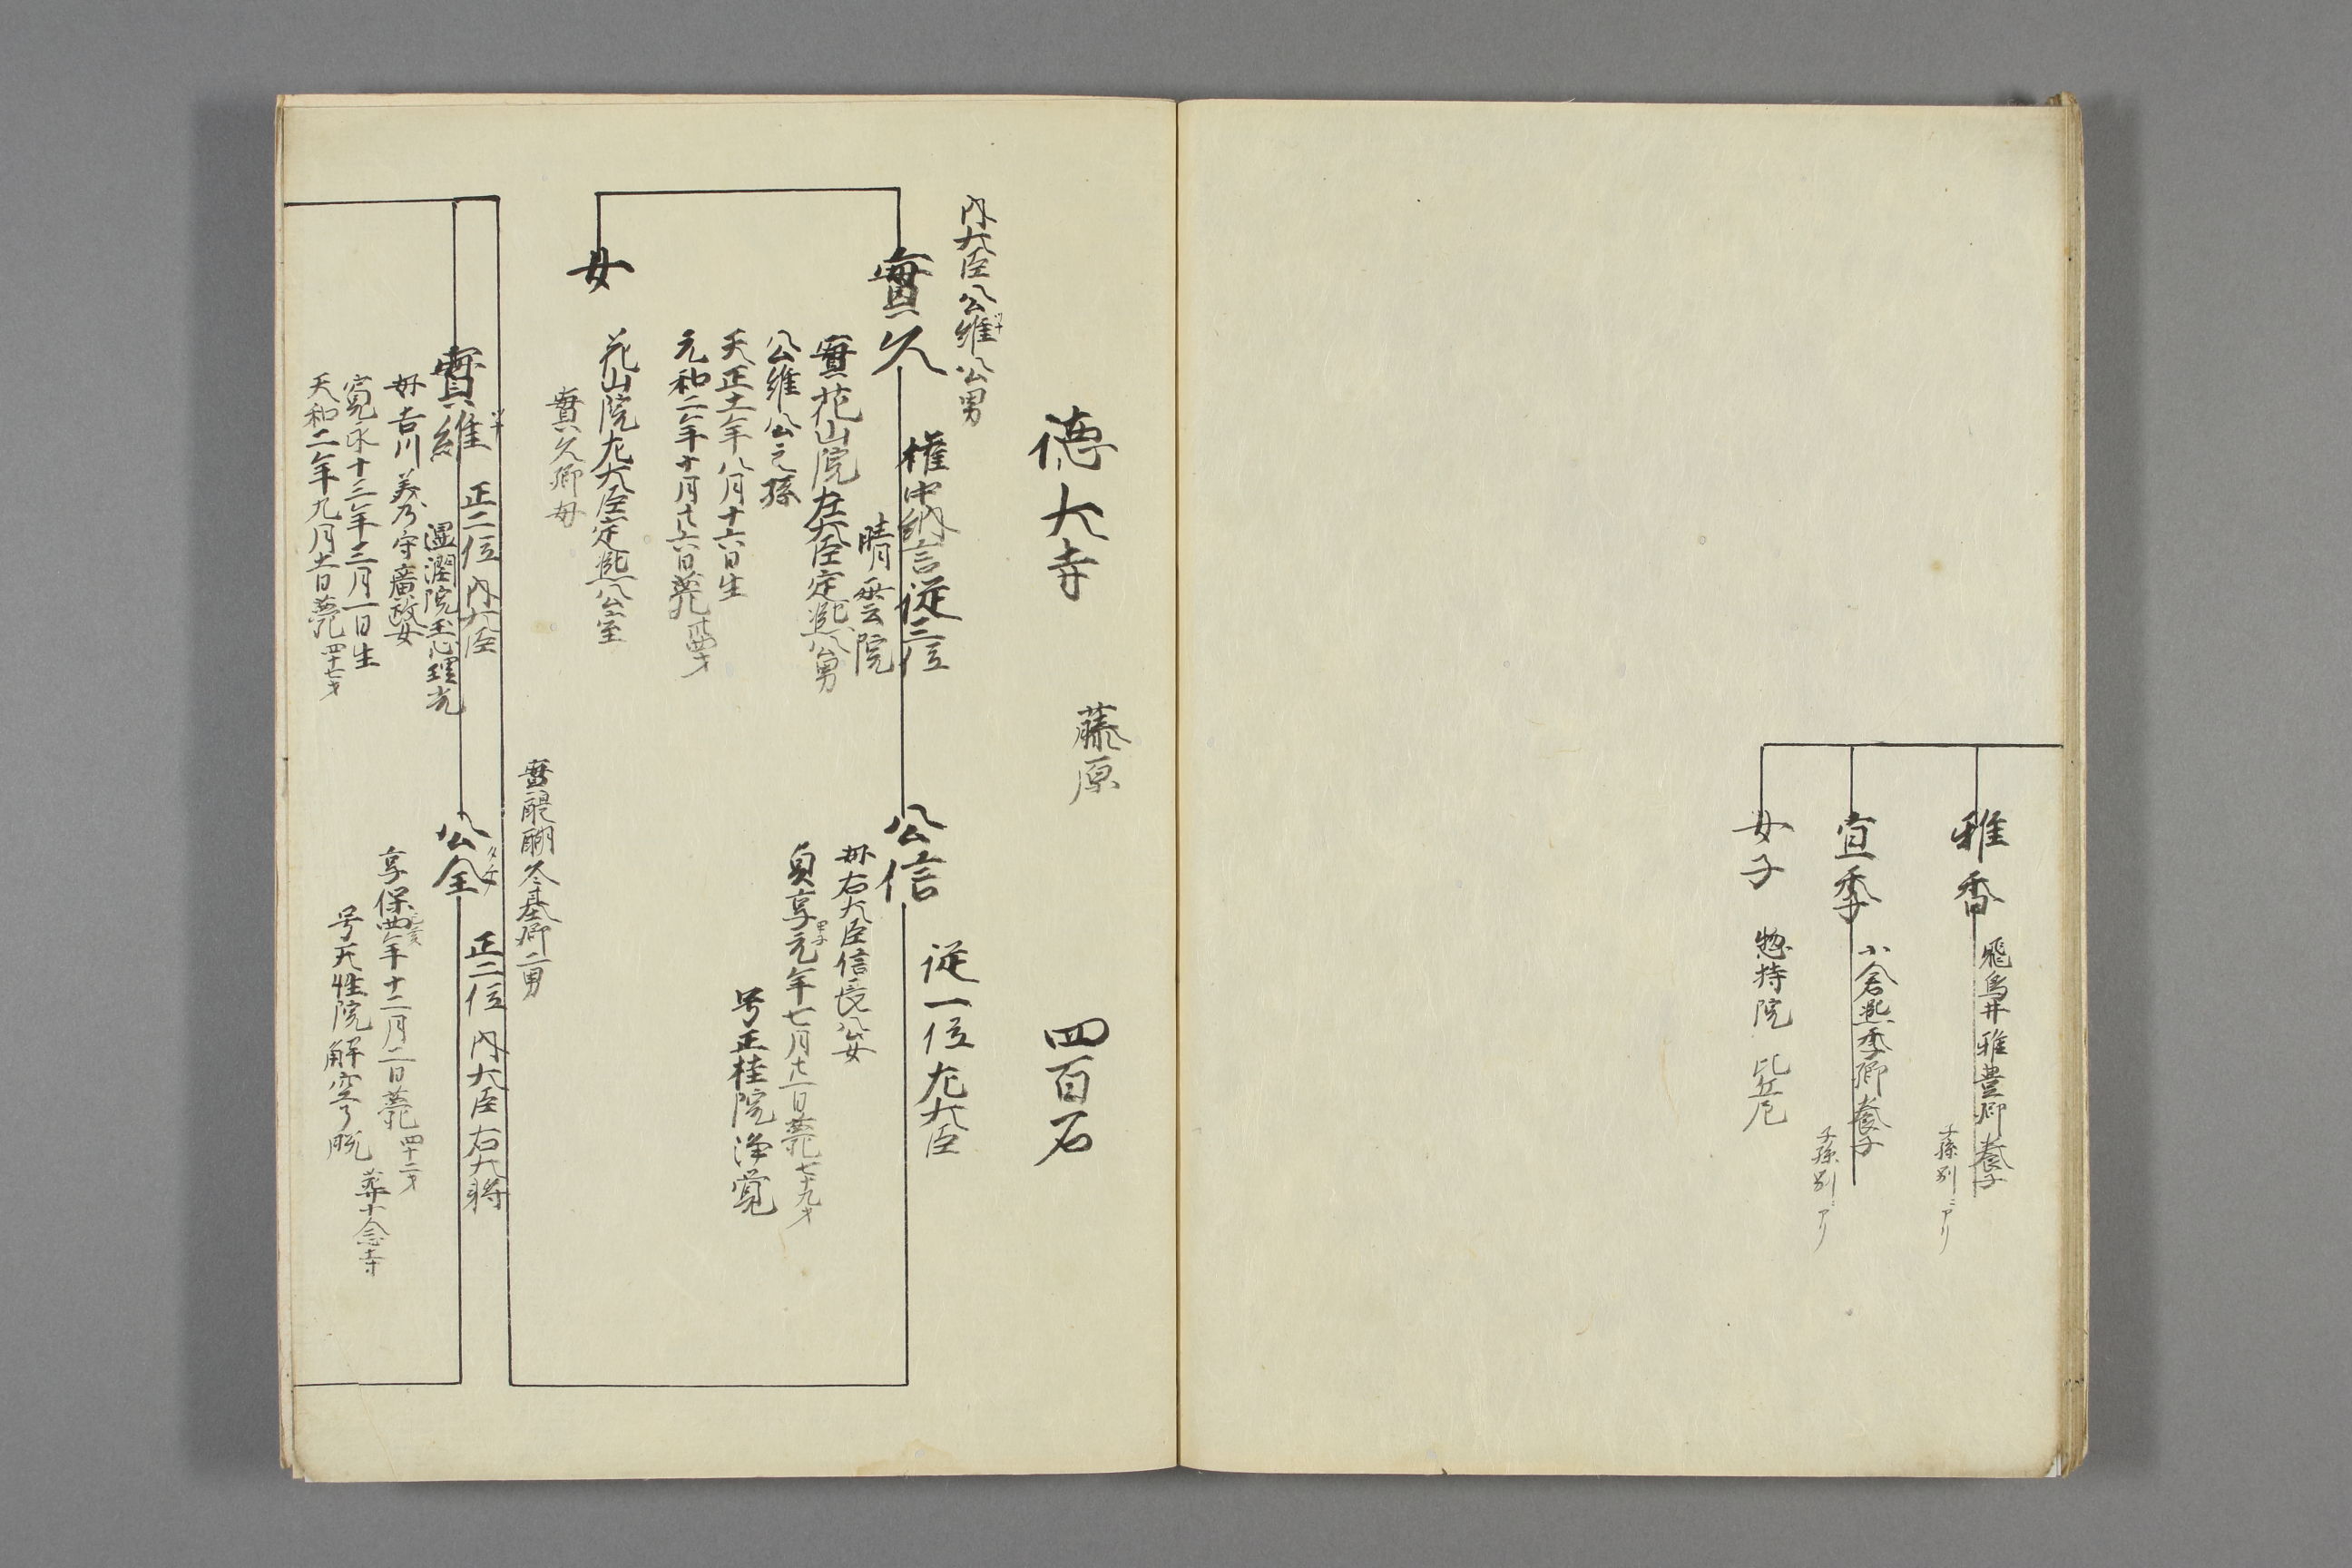 雅香
飛鳥井雅豊卿養子
子孫別ニアリ
宣季
小倉熈季卿養子
子孫別ニアリ
女子
惣持院
比丘尼
德大寺
藤原
四百石
内大臣公維公男
實久
權中納言従三位
晴雲院
實花山院左大臣定熈公男
公維公之孫
天正十一年八月十六日生
元和二年十一月廿六日薨
公信
従一位左大臣
母右大臣信長公女
貞享元年七月廿一日薨七十九才
甲子
号正桂院浄覚
女
花山院左大臣定熈公室
實久卿母
實維
正二位内大臣
温潤院玉心理光
母吉川美乃守廣政女
寛永十三年三月一日生
天和二年九月十一日薨四十七才
實醍醐冬基卿二男
公全
正二位内大臣右大将
享保四年十二月二日薨四十二才
己亥
葬十念寺
号天性院解空了脱